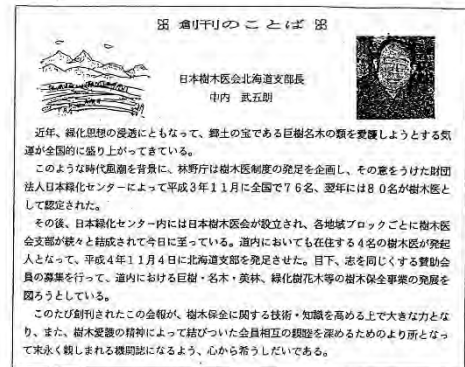 ※ 創刊のことば ※
日本樹木医会北海道支部長
中内 武五朗
近年、緑化思想の浸透にともなって、郷土の宝である巨樹名木の類を愛護しようとする気
運が全国的に盛り上がってきている。
このような時代風潮を背景に、林野庁は樹木医制度の発足を企画し、その意をうけた財団
法人日本緑化センターによって平成3年11月に全国で76名、翌年には80名が樹木医と
して認定された。
その後、日本緑化センター内には日本樹木医会が設立され、各地域ブロックごとに樹木医
会支部が続々と結成されて今日に至っている。道内においても在住する4名の樹木医が発起
人となって、平成4年11月4日に北海道支部を発足させた。目下、志を同じくする賛助会
員の募集を行って、道内における巨樹・名木・美林、緑化樹花木等の樹木保全事業の発展を
図ろうとしている。
このたび創刊されたこの会報が、樹木保全に関する技術・知識を高める上で大きな力とな
り、また、樹木愛護の精神によって結びついた会員相互の親睦を深めるためのより所となっ
て末永く親しまれる機関誌になるよう、心から希うしだいである。